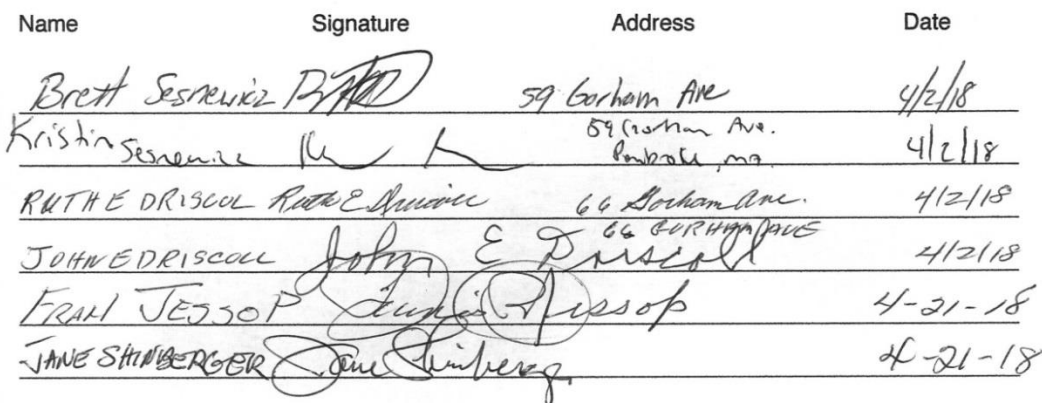 Name Signature Address Date
Brett Sesnewicz 59 Gorham Ave 4/2/18
Kristin Sesnewicz 59 Gorham Ave. Pembroke, ma 4/2/18
RUTH E DRISCOLL Ruth E Driscoll 66 Gorham Ave. 4/2/18
66 GORHAM AVE
JOHN E DRISCOLL John E Driscoll 4/2/18
FRAN JESSOP Jessop 4-21-18
JANE SHINBERGER Jane Shinberger 4-21-18